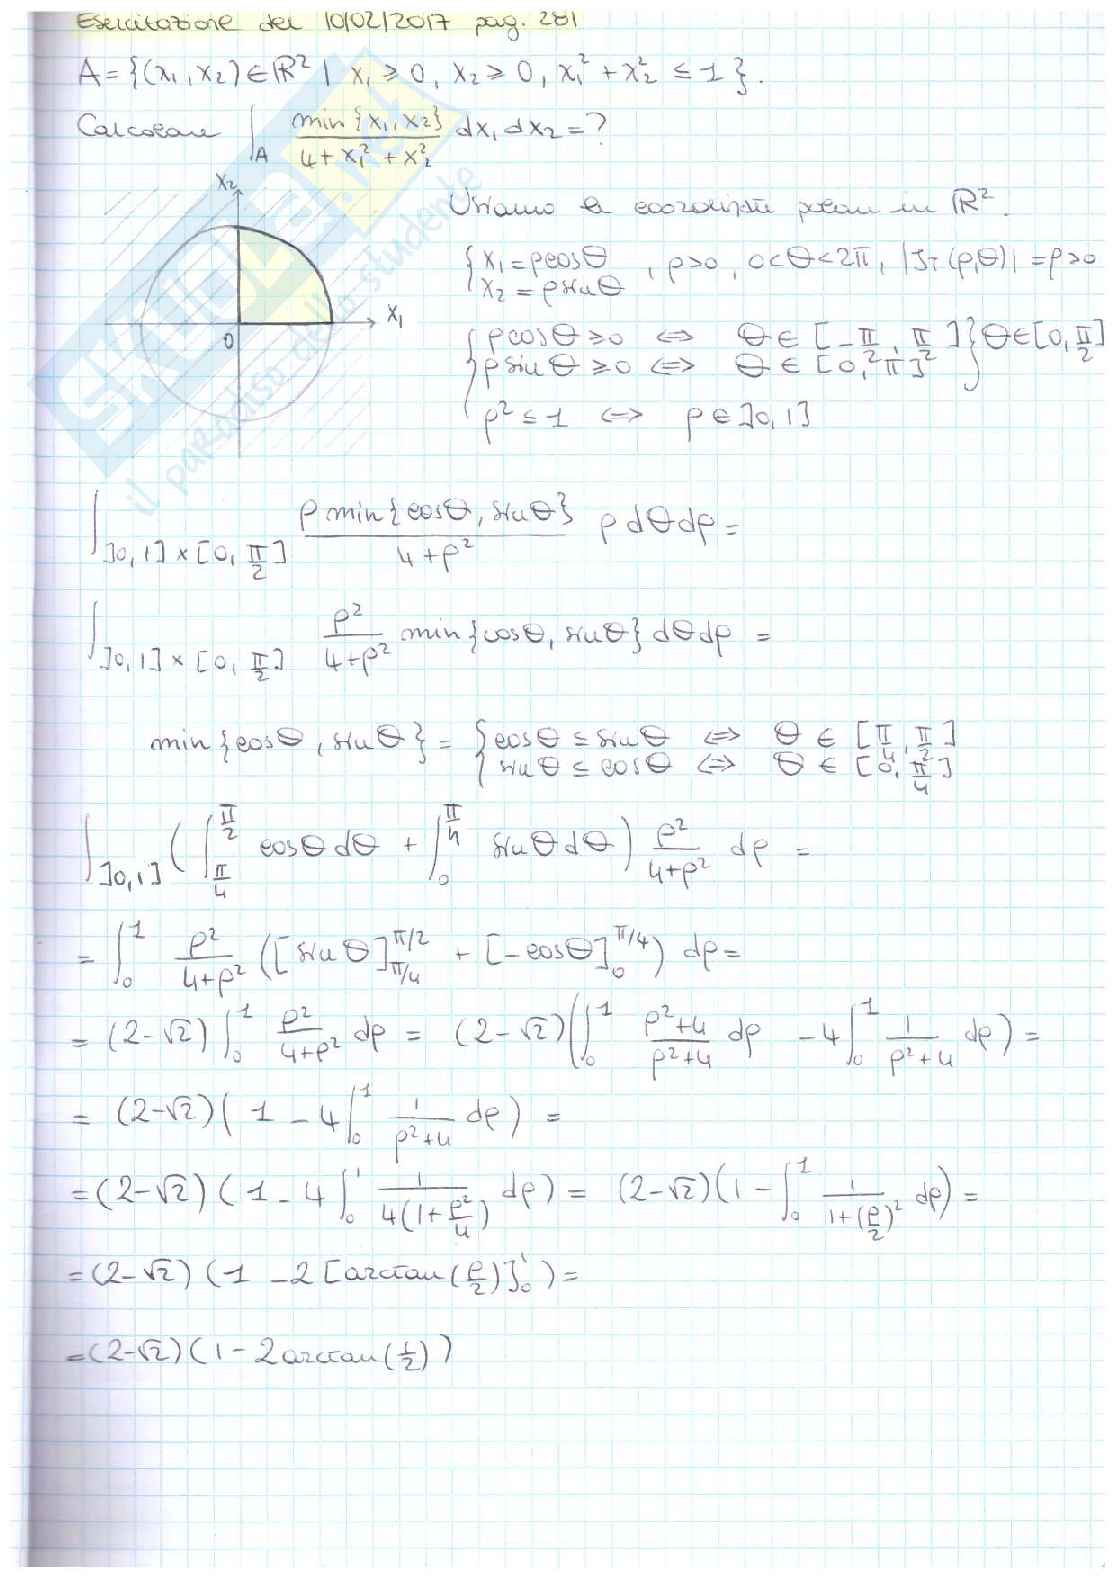 Esercitazione del 10/02/2017 pag. 281
A = {(x₁, x₂) ∈ ℝ² | x₁ ≥ 0, x₂ ≥ 0, x₁² + x₂² ≤ 1}.
Calcolare ∫_A min{x₁, x₂} / (4 + x₁² + x₂²) dx₁ dx₂ = ?
x₂
x₁
0
Usiamo le coordinate polari in ℝ².
{ x₁ = ρcosθ , ρ>0, 0<θ<2π, |J_T(ρ,θ)| = ρ>0
x₂ = ρsinθ
{ ρcosθ ≥ 0 ⇔ θ ∈ [-π/2, π/2] } θ ∈ [0, π/2]
ρsinθ ≥ 0 ⇔ θ ∈ [0, π]
ρ² ≤ 1 ⇔ ρ ∈ ]0, 1]
∫_{]0,1] × [0, π/2]} ρ min{cosθ, sinθ} / (4+ρ²) ρ dθ dρ =
∫_{]0,1] × [0, π/2]} ρ²/(4+ρ²) min{cosθ, sinθ} dθ dρ =
min{cosθ, sinθ} = { cosθ ≤ sinθ ⇔ θ ∈ [π/4, π/2]
sinθ ≤ cosθ ⇔ θ ∈ [0, π/4]
∫_{]0,1]} (∫_{π/4}^{π/2} cosθ dθ + ∫_0^{π/4} sinθ dθ) ρ²/(4+ρ²) dρ =
= ∫_0^1 ρ²/(4+ρ²) ([sinθ]_{π/4}^{π/2} + [-cosθ]_0^{π/4}) dρ =
= (2-√2) ∫_0^1 ρ²/(4+ρ²) dρ = (2-√2) (∫_0^1 (ρ²+4)/(ρ²+4) dρ - 4 ∫_0^1 1/(ρ²+4) dρ) =
= (2-√2) (1 - 4 ∫_0^1 1/(ρ²+4) dρ) =
= (2-√2) (1 - 4 ∫_0^1 1/(4(1+ρ²/4)) dρ) = (2-√2) (1 - ∫_0^1 1/(1+(ρ/2)²) dρ) =
= (2-√2) (1 - 2 [arctan(ρ/2)]_0^1) =
= (2-√2) (1 - 2 arctan(1/2))
SKUOLA.net
il paradiso dello studente